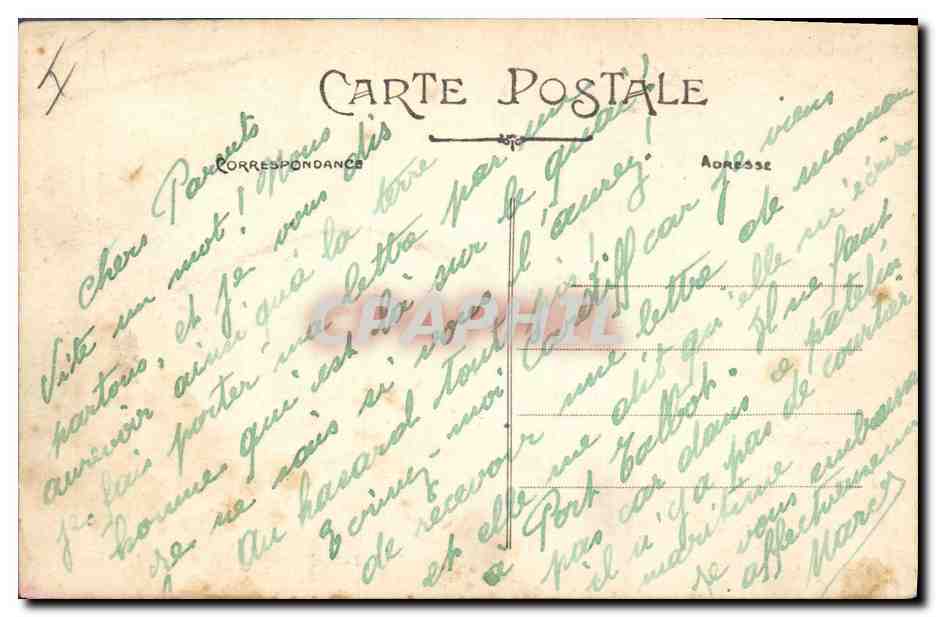 CARTE POSTALE
CORRESPONDANCE
ADRESSE
Chers Parents
Vite un mot ! Nous
partons, et je vous dis
aurevoir ainsi qu'à la terre
je fais porter ma lettre par un
homme qui est là sur le quai !
Je ne sais si vous l'aurez !
Au hasard tout
Ecrivez-moi Cardiff car je viens
de recevoir une lettre de maman
et elle me dit qu'elle m'écrira
à Port Talbot. Il ne faut
pas car dans ce patelin
il n'y a pas de courtier
maritime
Je vous embrasse
affectueusement
Marcel
CPAPHIL